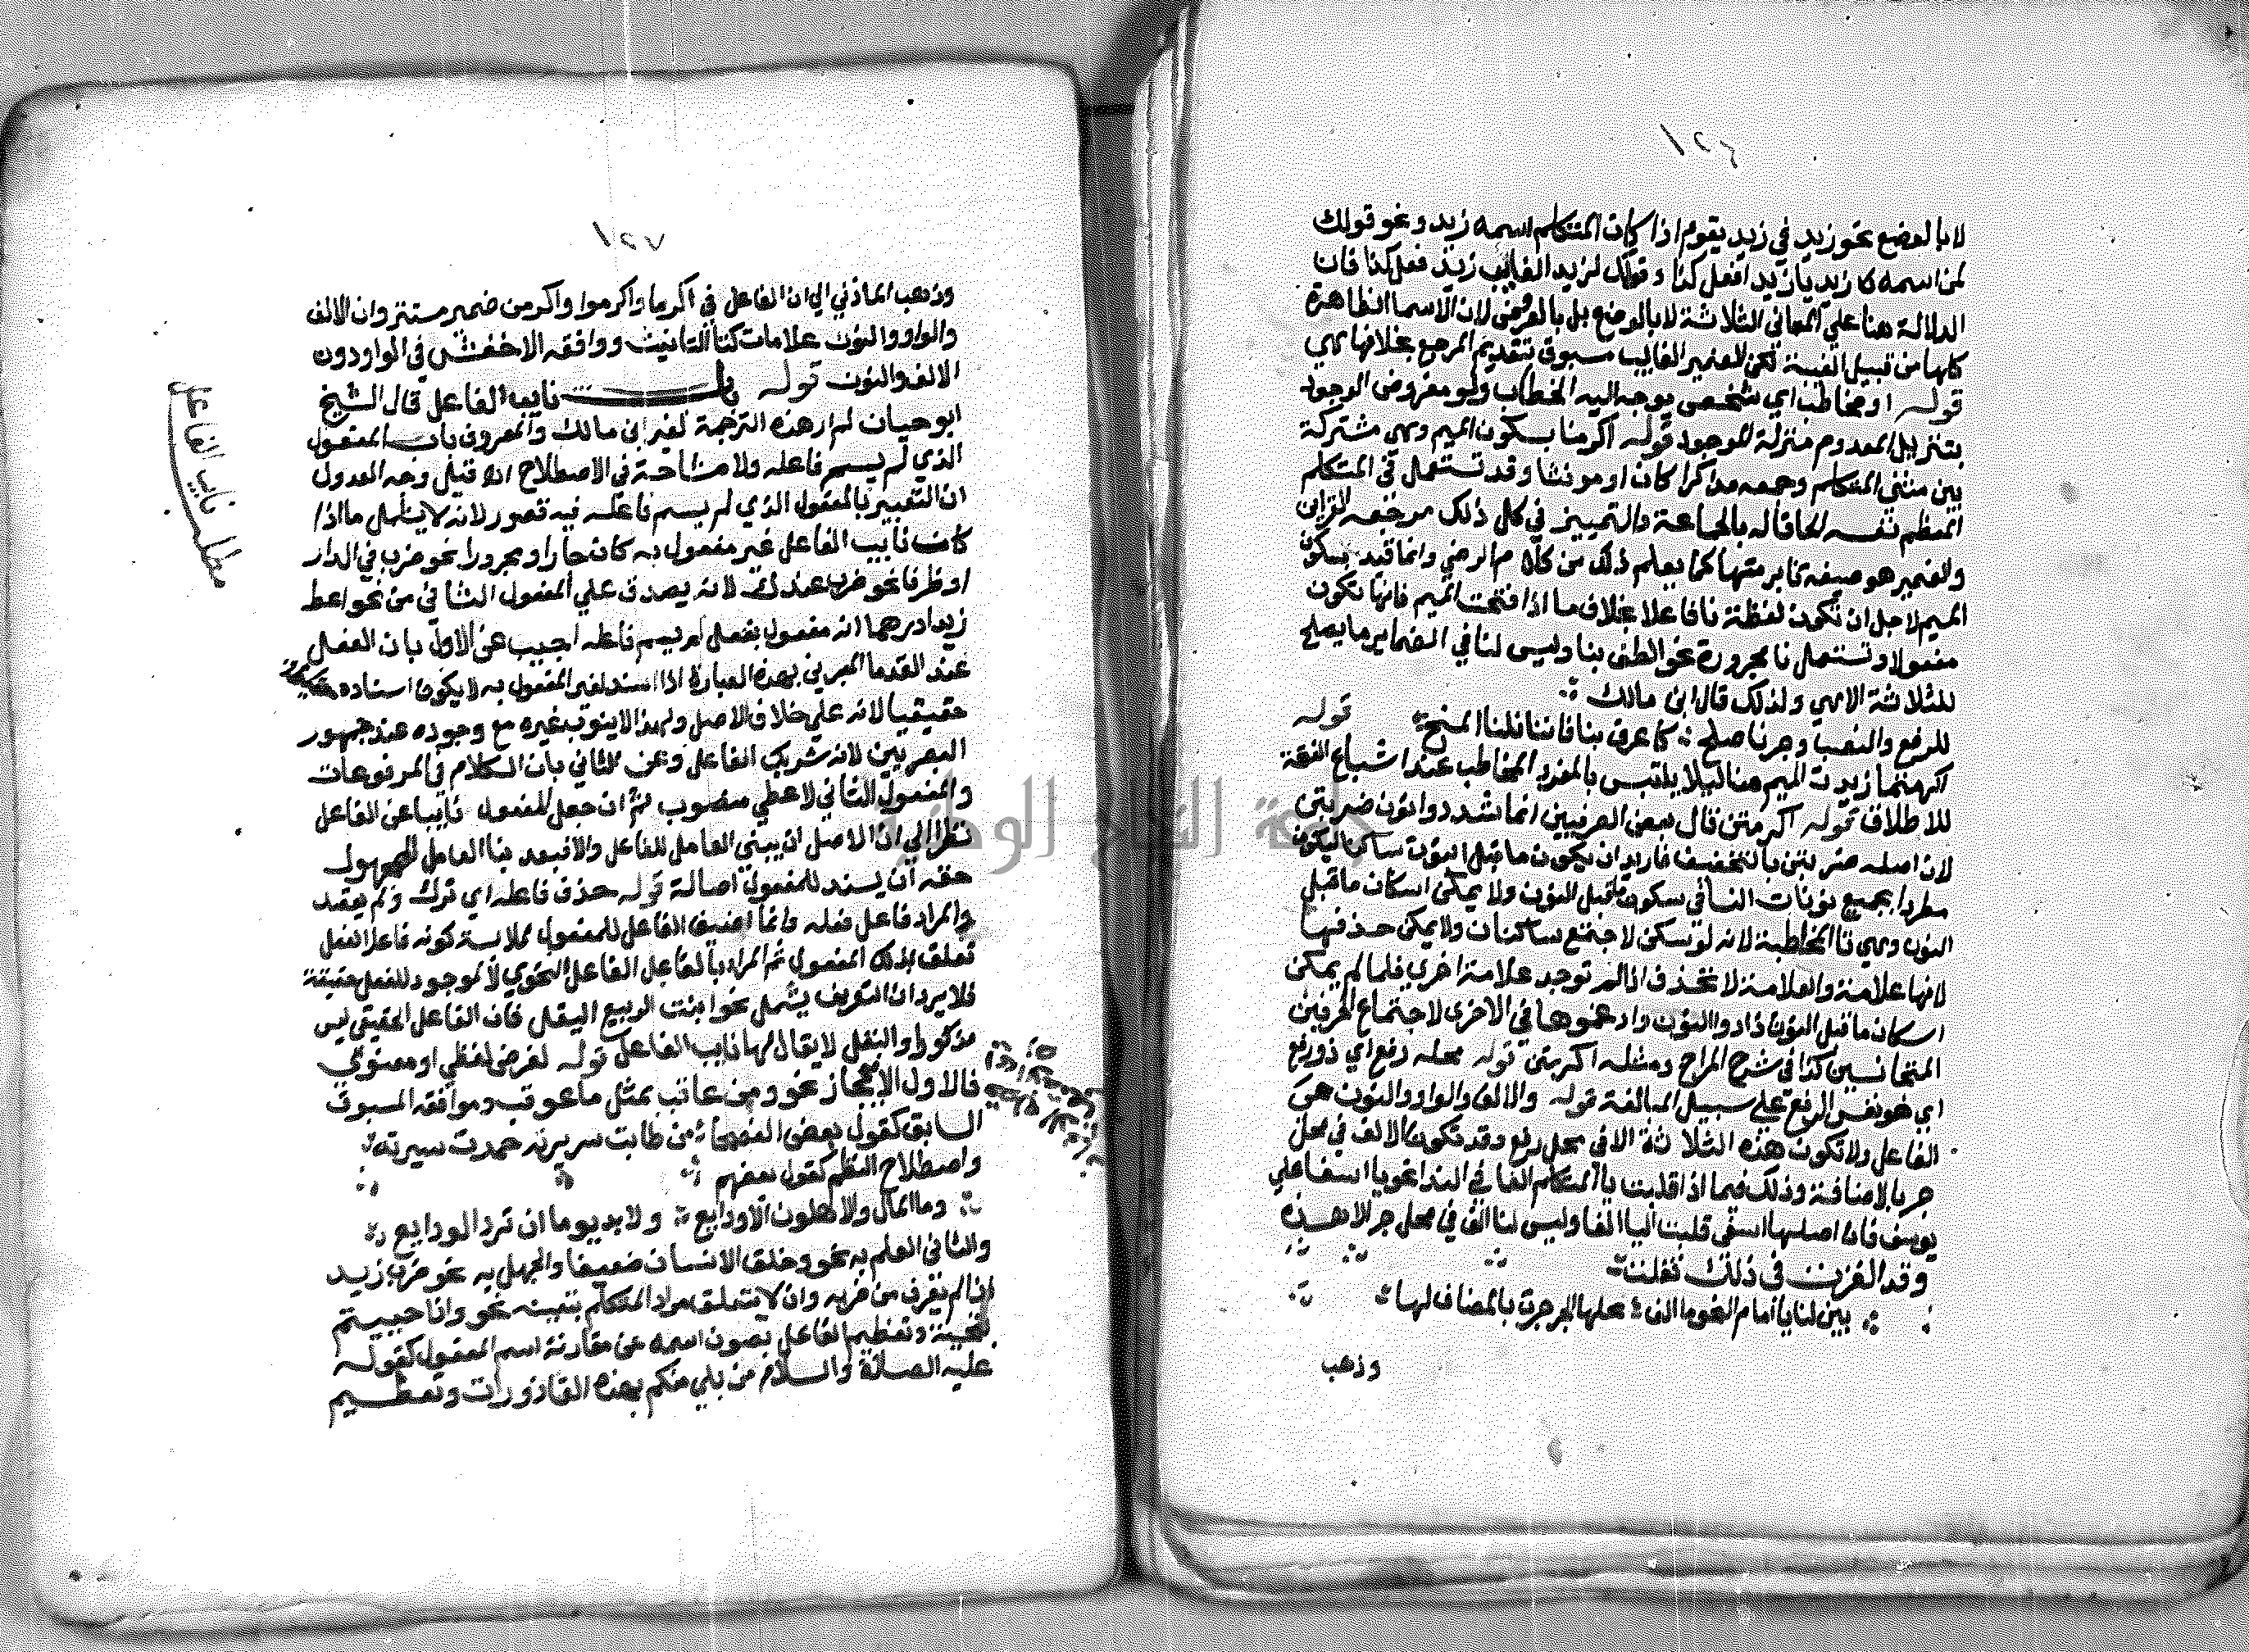 ١٢٤
لا بالوضع نحو زيد في زيد يقوم اذا كان المتكلم اسمه زيد ونحو قولك
لمن اسمه كا زيد يا زيد افعل كذا وقولك لزيد الغايب زيد فعل كذا فان
الدلالة هنا علي المعاني الثلاثة لا بالوضع بل بالعرض لان الاسما الظاهرة
كلها من قبيل الغيبة لكن الضمير الغايب مسبوق بتقديم المرجع بخلافها هي
قوله او مخاطب اي شخص يوجه اليه الخطاب ولو مفروض الوجود
بتنزيل المعدوم منزلة الموجود قوله اكرمنا بسكون الميم وهي مشتركة
بين مثني المتكلم وجمعه مذكرا كان او مونثا وقد تستعمل في المتكلم
المعظم نفسه الحاقا له بالجماعة والتمييز في كل ذلك مرجعه القراين
والضمير هو صيغة نا برمتها كما يعلم ذلك من كلام الرضي وانما قيد بسكون
الميم لاجل ان تكون لفظة نا فاعلا بخلاف ما اذا فتحت الميم فانها تكون
مفعولا وتستعمل نا مجرورة نحو الطف بنا وليس لنا في الضماير ما يصلح
للثلاثة الا هي ولذلك قال ابن مالك
للرفع والنصب وجر نا صلح كاعرف بنا فاننا نلنا المنح قوله
اكرمتما زيدت الميم هنا ليلا يلتبس بالمفرد المخاطب عند اشباع الفتحة
للاطلاق قوله اكرمتن قال بعض الصرفيين انما شددوا نون ضربتن
لان اصله ضربتن بالتخفيف فاريد ان يكون ما قبل النون ساكنا ليكون
مطردا بجميع نونات النسا في سكون ما قبل النون ولا يمكن اسكان ما قبل
النون وهي تا المخاطبة لانه لو تسكن لاجتمع ساكنان ولا يمكن حذفها
لانها علامة والعلامة لا تحذف اذا لم توجد علامة اخري فلما لم يمكن
اسكان ما قبل النون زادوا النون وادغموها في الاخرى لاجتماع الحرفين
المتجانسين كذا في شرح المراح ومثله اكرمتن قوله محله رفع اي ذو رفع
اي هو نفس الرفع علي سبيل المبالغة قوله والالف والواو والنون هي
الفاعل ولا تكون هذه الثلاثة الا في محل رفع وقد تكون الالف في محل
جر بالاضافة وذلك فيما اذا قلبت يا المتكلم الفا في الندا نحو يا اسفا علي
يوسف فان اصلها اسفي قلبت اليا الفا وليس لنا الف في محل جر الا هذه
وقد الغزت في ذلك فقلت
بين لنا يا امام النحو ما الف محلها الجر جرت بالمضاف لها
وذهب
١٢٧
وذهب المازني الي ان الفاعل في اكرما واكرموا واكرمن ضمير مستتر وان الالف
والواو والنون علامات كتا التانيث ووافقه الاخفش في الواو دون
الالف والنون قوله باب نايب الفاعل قال الشيخ
ابو حيان لم ار هذه الترجمة لغير ابن مالك والمعروف باب المفعول
الذي لم يسم فاعله ولا مشاحة في الاصطلاح اه قيل وجه العدول
ان التعبير بالمفعول الذي لم يسم فاعله فيه قصور لانه لا يشمل ما اذا
كان نايب الفاعل غير مفعول به كان جارا ومجرورا نحو ضرب في الدار
او ظرفا نحو ضرب عندك لانه يصدق علي المفعول الثاني من نحو اعطي
زيد درهما انه مفعول بفعل لم يسم فاعله اجيب عن الاول بان الفعل
عند القدما المعبرين بهذه العبارة اذا اسند لغير المفعول به لا يكون اسناده
حقيقيا لانه علي خلاف الاصل ولهذا لا ينوب غيره مع وجوده عند جمهور
البصريين لانه شريك الفاعل وعن الثاني بان الكلام في المرفوعات
والمفعول الثاني لاعطي منصوب ثم ان جعل المفعول نايبا عن الفاعل
نظرا الي ان الاصل ان يبني العامل للفاعل والا فبعد بنا العامل للمجهول
حقه ان يسند للمفعول اصالة قوله حذف فاعله اي ترك ولم يقصد
والمراد فاعل فعله وانما اضيف الفاعل للمفعول لملابسة كونه فاعل الفعل
تعلق بذلك المفعول ثم المراد بالفاعل الفاعل النحوي لا الموجود للفعل حقيقة
فلا يرد ان التعريف يشمل نحو انبت الربيع البقل فان الفاعل الحقيقي ليس
مذكورا والبقل لا يقال لها نايب الفاعل قوله لغرض لفظي او معنوي
فالاول الايجاز نحو ومن عاقب بمثل ما عوقب وموافقة المسبوق
السابق كقول بعض الفصحا من طابت سريرته حمدت سيرته
واصطلاح النظم كقول بعضهم
وما المال والاهلون الا ودايع ولا بد يوما ان ترد الودايع
والثاني العلم به نحو وخلق الانسان ضعيفا والجهل به نحو ضرب زيد
اذا لم تعرف من ضربه وان لا يتعلق مراد المتكلم بتعيينه نحو واذا حييتم
بتحية وتعظيم الفاعل بصون اسمه عن مقارنة اسم المفعول كقوله
عليه الصلاة والسلام من بلي منكم بهذه القاذورات وتعظيم
مطلب نايب الفاعل
جامعة الوطنية